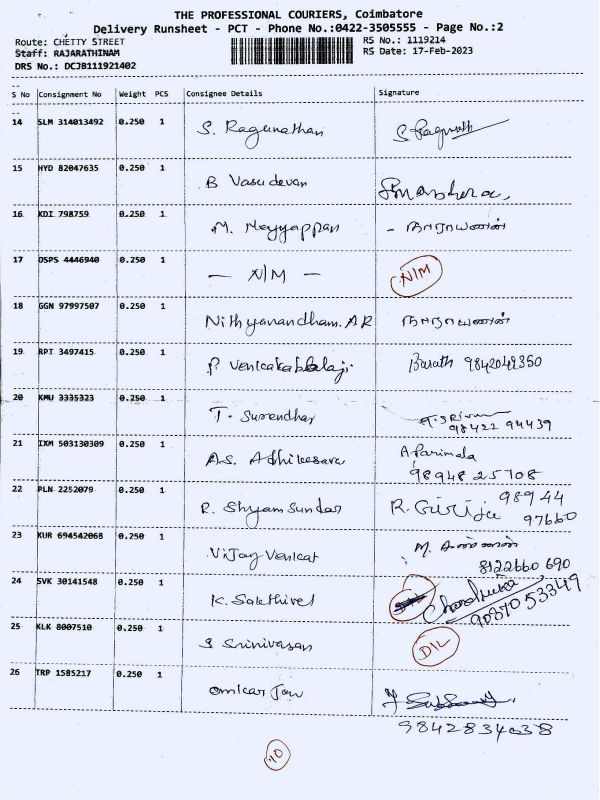 THE PROFESSIONAL COURIERS, Coimbatore
Delivery Runsheet - PCT - Phone No.:0422-3505555 - Page No.:2
Route: CHETTY STREET
RS No.: 1119214
Staff: RAJARATHINAM
RS Date: 17-Feb-2023
DRS No.: DCJB111921402
S No Consignment No Weight PCS Consignee Details Signature
14 SLM 314013492 0.250 1 S. Ragunathan
15 HYD 82047635 0.250 1 B Vasudevan
16 KDI 798759 0.250 1 M. Meyyappan - நாராயணன்
17 DSPS 4446940 0.250 1 — N/M — N/M
18 GGN 97997507 0.250 1 Nithyanandham. AR நாராயணன்
19 RPT 3497415 0.250 1 P. Venkatabalaji Barath 9842049350
20 KMU 3335323 0.250 1 T. Surendhar
98422 94439
21 IXM 503130309 0.250 1 A.S. Adhikesava A Parimala
98948 25708
22 PLN 2252079 0.250 1 R. Shyam Sundar R. Girija 98944
97660
23 KUR 694542068 0.250 1 Vijay Venkat M.
8122660 690
24 SVK 30141548 0.250 1 K. Sakthivel
90870 53349
25 KLK 8007510 0.250 1 S Srinivasan D/L
26 TRP 1585217 0.250 1
9842834038
10